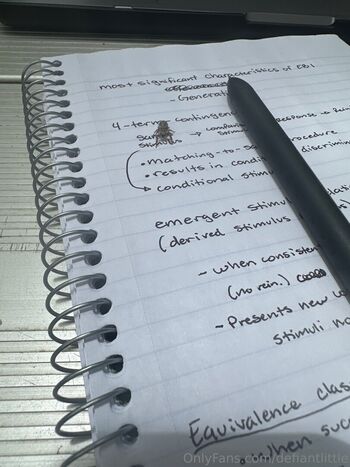 most significant characteristics of EBI
- Generat
4-term contingen
→ response →
stimulus
• matching-to-s procedure
• results in condi discrimin
→ conditional stim
emergent stimul
(derived stimulus
- when consisten
(no rein.)
- Presents new
stimuli no
Equivalence clas
when suc
OnlyFans.com/defiantlittle